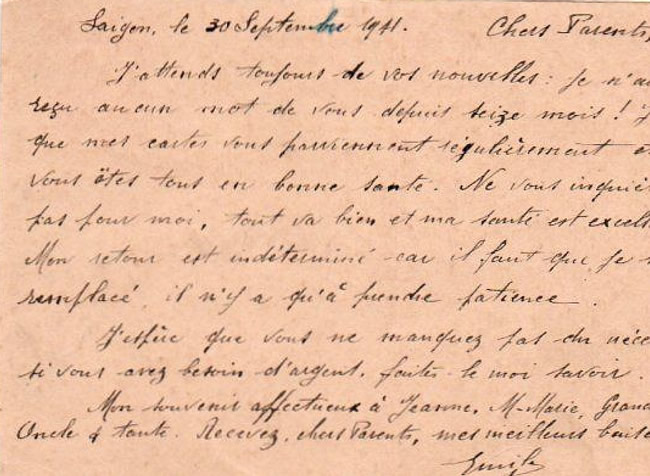 Saigon, le 30 Septembre 1941. Chers Parents,
J'attends toujours de vos nouvelles : je n'ai
reçu aucun mot de vous depuis seize mois ! J
que mes cartes vous parviennent régulièrement e
vous êtes tous en bonne santé. Ne vous inquié
pas pour moi, tout va bien et ma santé est excell
Mon retour est indéterminé car il faut que je s
remplacé, il n'y a qu'à prendre patience.
J'espère que vous ne manquez pas du néce
si vous avez besoin d'argent, faites-le moi savoir.
Mon souvenir affectueux à Jeanne, M-Marie, Grand
Oncle & tante. Recevez, chers Parents, mes meilleurs baise
Emile